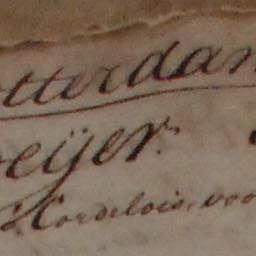 otterdam
eijer.
Cordelois, voo